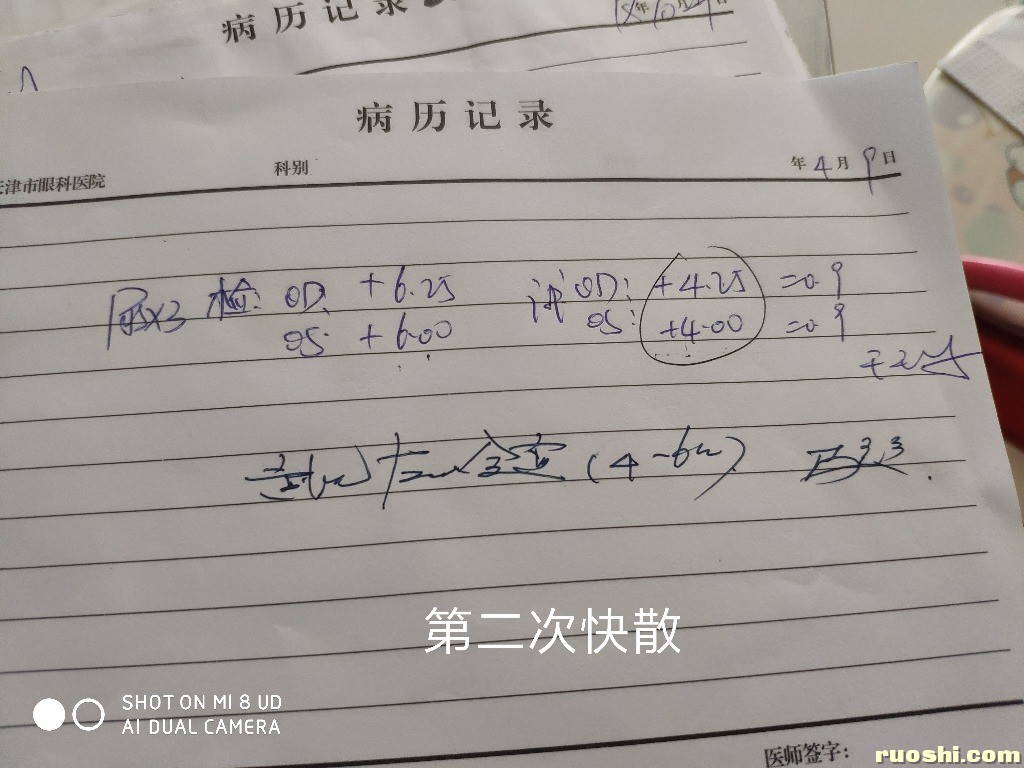 病历记录
年 月 日
病历记录
天津市眼科医院 科别 年 4 月 9 日
检: OD: +6.25 试 OD: +4.25 =0.9
OS: +6.00 OS: +4.00 =0.9
(4-6w)
第二次快散
SHOT ON MI 8 UD
AI DUAL CAMERA
医师签字:
ruoshi.com